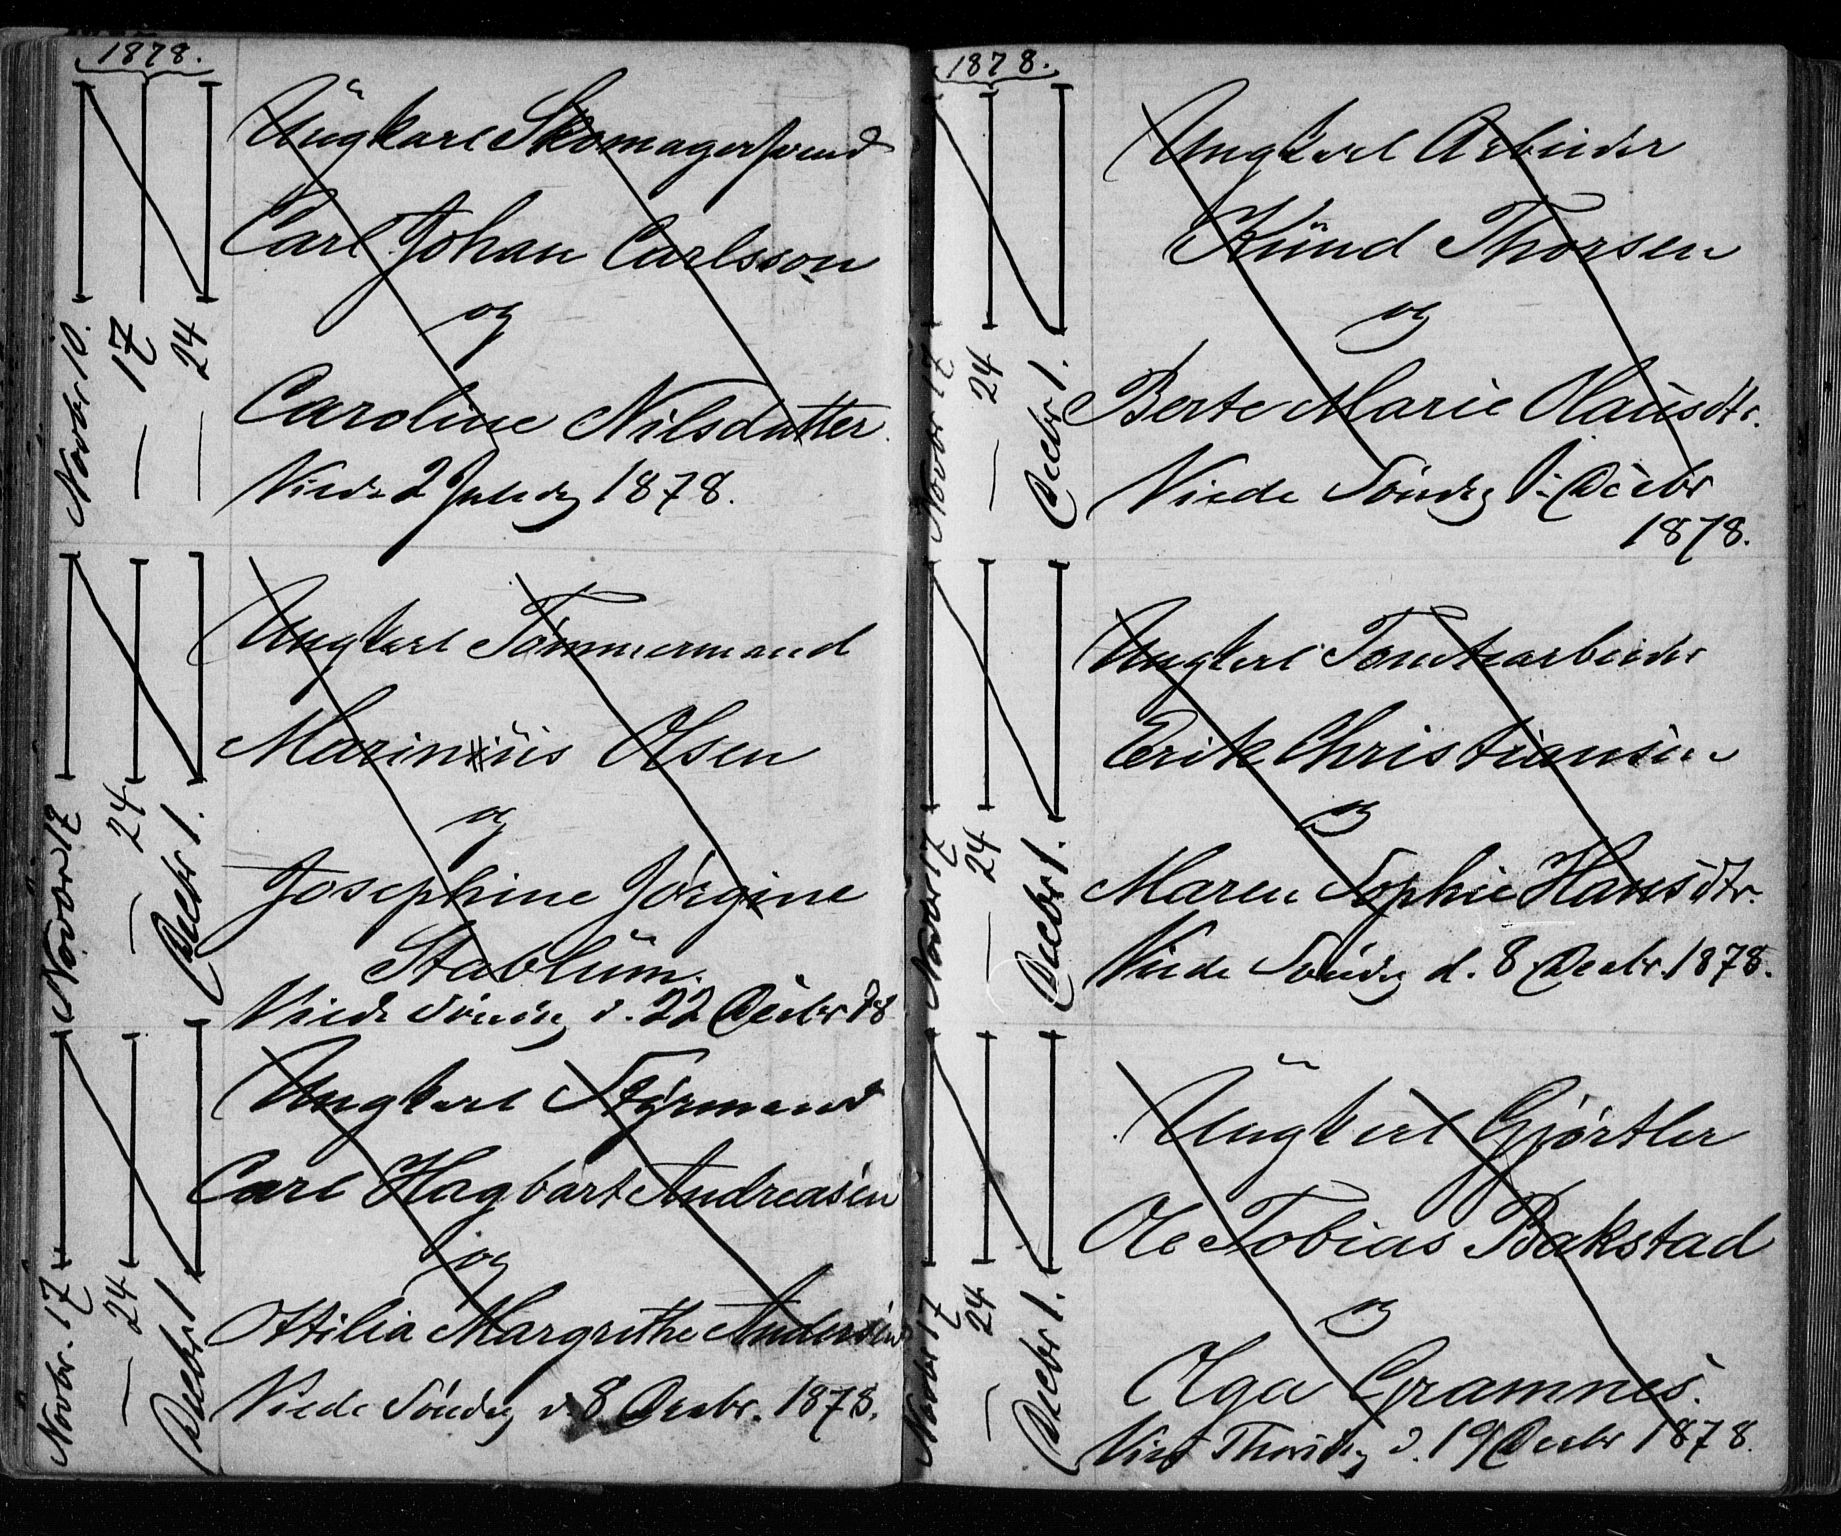 1878.
Novbr 10.
— 17
— 24
Ungkarl Skomagersvend
Carl Johan Carlsson
og
Caroline Nilsdatter.
Viede 2 Juledag 1878.
Novbr 17
— 24
Decbr 1.
Ungkarl Tømmermand
Marinius Olsen
og
Josephine Jørgine
Stablum.
Viede Søndag d. 22 Decbr 78
Novbr. 17
— 24
Decbr. 1
Ungkarl Styrmand
Carl Hagbart Andreasen
og
Ottilia Margrethe Andersen
Viede Søndag d. 8 Decbr. 1878.
1878.
Novbr 17
— 24
Decbr 1.
Ungkarl Arbeider
Knud Thorsen
og
Berte Marie Olausdtr.
Viede Søndag 1. Decbr
1878.
Novbr 17
— 24
Decbr 1.
Ungkarl Tomtearbeider
Erik Christiansen
og
Maren Sophie Hansdtr.
Viede Søndag d. 8 Decbr. 1878.
Novbr 17
— 24
Decbr 1.
Ungkarl Gjørtler
Ole Tobias Bakstad
og
Olga Gramnes.
Viet Thorsdag d. 19 Decbr 1878.